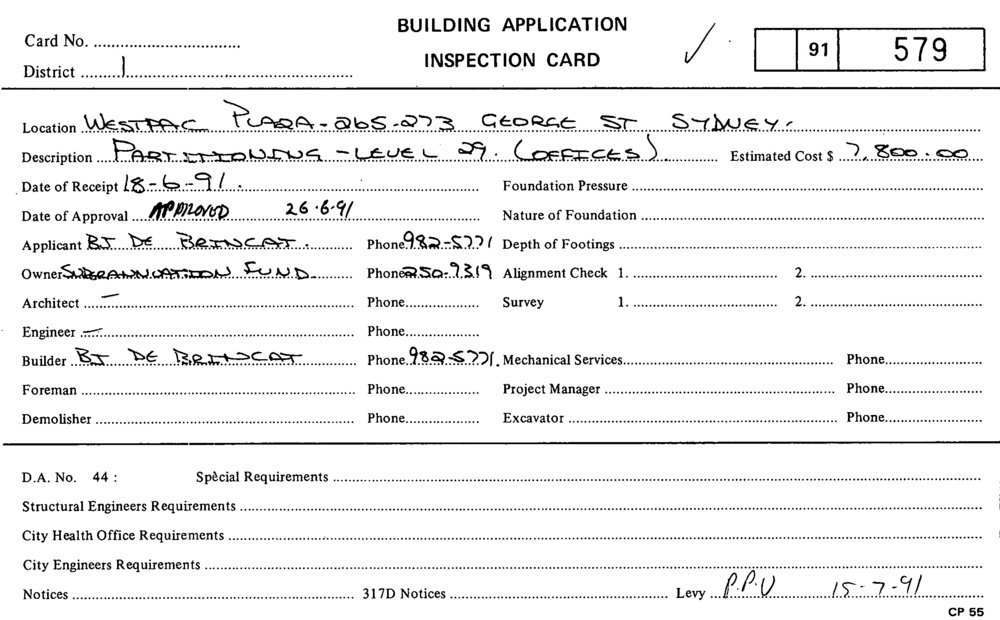 BUILDING APPLICATION
Card No.
INSPECTION CARD
✓ 91 579
District 1
Location WESTPAC PLAZA - 265-273 GEORGE ST SYDNEY.
Description PARTITIONING - LEVEL 29. (OFFICES) Estimated Cost $ 7,800.00
Date of Receipt 18-6-91. Foundation Pressure
Date of Approval APPROVED 26.6.91 Nature of Foundation
Applicant BJ DE BRINCAT. Phone 982-5771 Depth of Footings
Owner SUPERANNUATION FUND. Phone 250-9319 Alignment Check 1. 2.
Architect — Phone Survey 1. 2.
Engineer — Phone
Builder BJ DE BRINCAT Phone 982-5771. Mechanical Services Phone
Foreman Phone Project Manager Phone
Demolisher Phone Excavator Phone
D.A. No. 44 : Special Requirements
Structural Engineers Requirements
City Health Office Requirements
City Engineers Requirements
Notices 317D Notices Levy P.P.U 15-7-91
CP 55